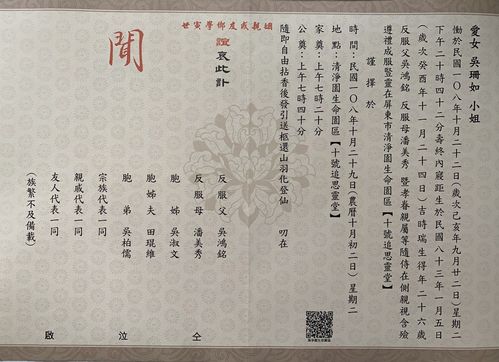 愛女 吳珊如 小姐
慟於民國一〇八年十月二十二日(歲次己亥年九月廿二日)星期二
下午二十時四十二分壽終內寢距生於民國八十三年一月五日
(歲次癸酉年十一月二十四日)吉時瑞生得年二十六歲
反服父吳鴻銘 反服母潘美秀 暨孝眷親屬等隨侍在側親視含殮
遵禮成服暨靈在屏東市清淨園生命園區【十號追思靈堂】
謹擇於
時間:民國一〇八年十月二十九日(農曆十月初二日)星期二
地點:清淨園生命園區【十號追思靈堂】
家奠:上午七時二十分
公奠:上午七時四十分
隨即自由拈香後發引送柩還山羽化登仙 叨在
姻親戚友鄉學寅世
誼哀此訃
聞
反服父 吳鴻銘
反服母 潘美秀
胞姊 吳淑文
胞姊夫 田琨維
胞弟 吳柏儒
宗族代表一同
親戚代表一同
友人代表一同
(族繁不及備載)
仝
泣
啟